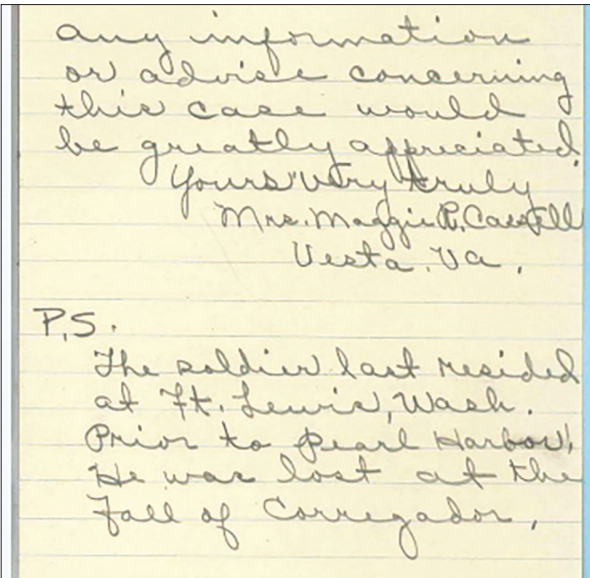 any information
or advise concerning
this case would
be greatly appreciated.
Yours very truly
Mrs. Maggie R. Cassell
Vesta, Va.
P.S.
The soldier last resided
at Ft. Lewis, Wash.
Prior to Pearl Harbor,
He was lost at the
Fall of Corregador,